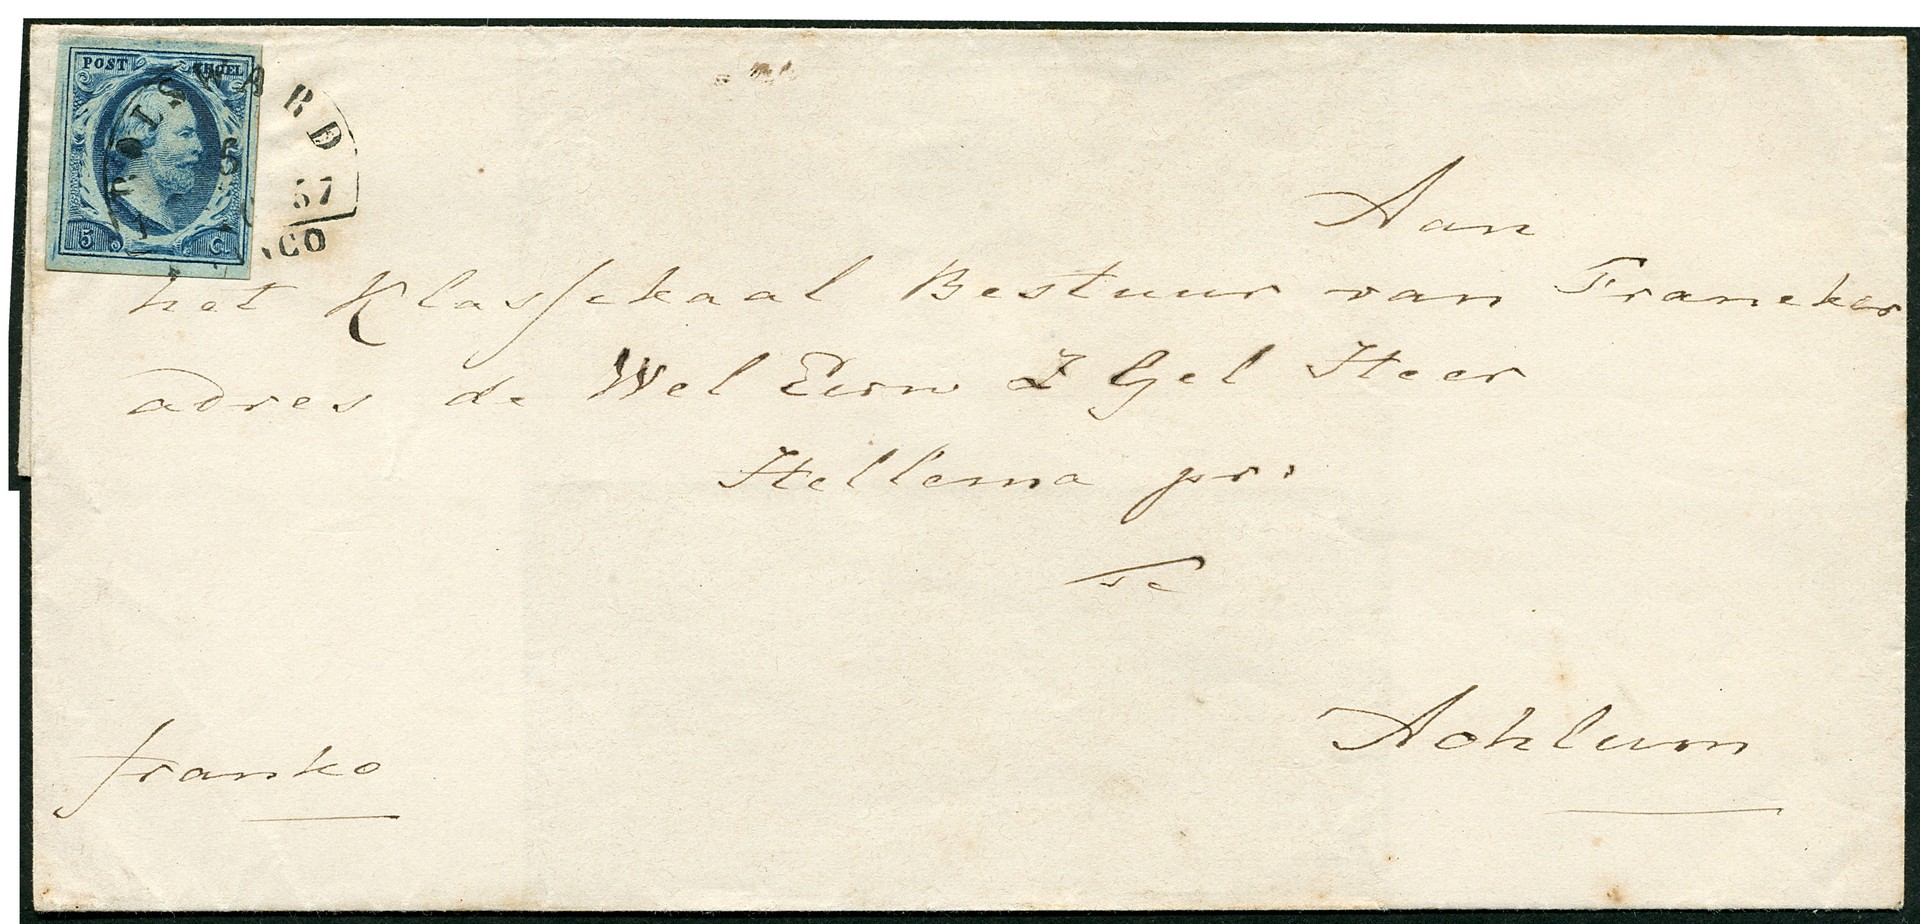 POST ZEGEL
5 C.
BOLSWARD
6
57
Aan
het Klassekaal Bestuur van Franeker
adres de Wel Eerw Z Gel Heer
Hellema pr:
te
Achlum
franko